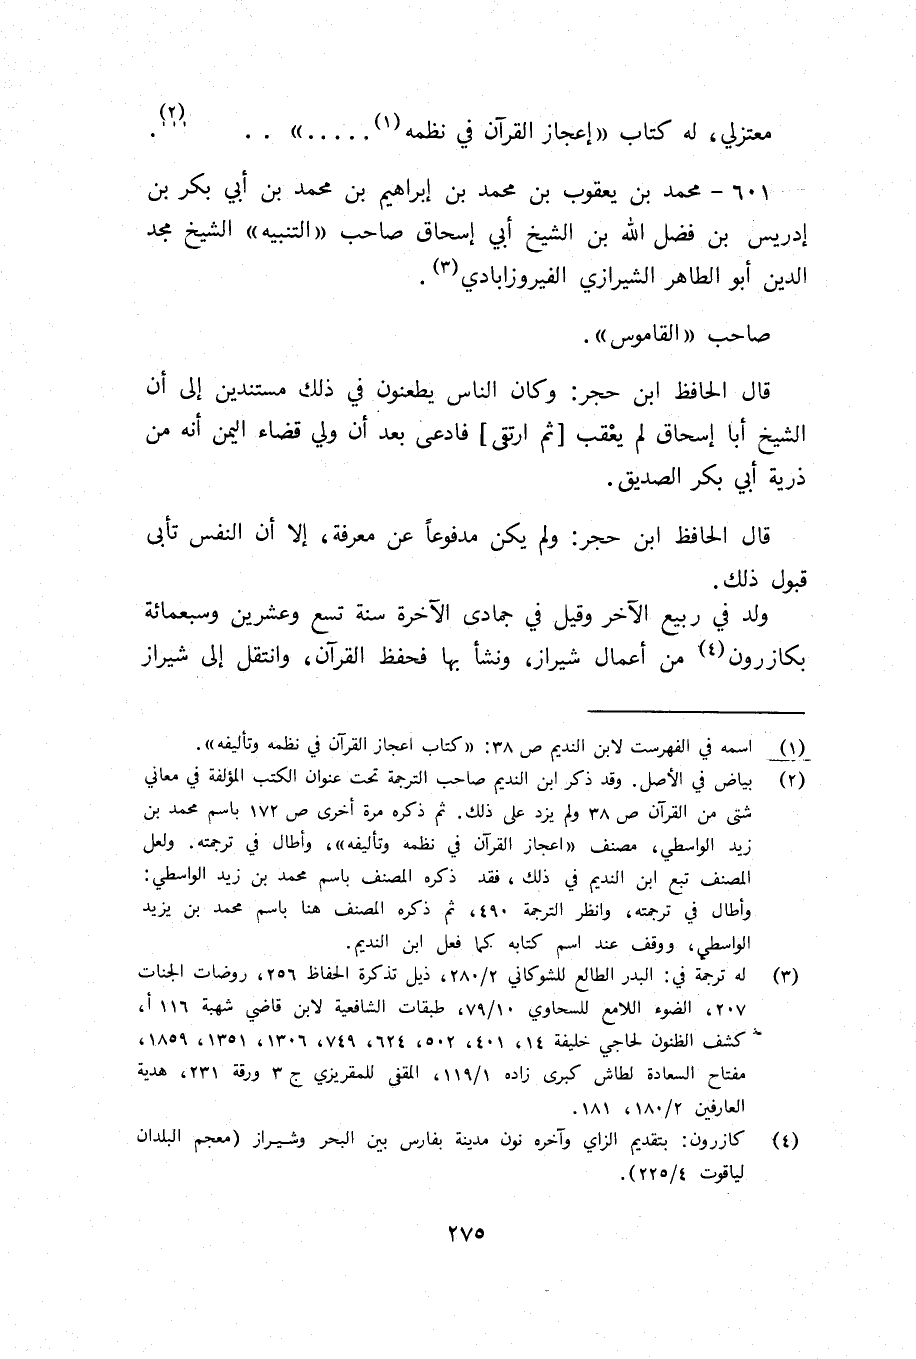 معتزلي، له كتاب «إعجاز القرآن في نظمه(١).....» . . (٢).
٦٠١ - محمد بن يعقوب بن محمد بن إبراهيم بن محمد بن أبي بكر بن
إدريس بن فضل الله بن الشيخ أبي إسحاق صاحب «التنبيه» الشيخ مجد
الدين أبو الطاهر الشيرازي الفيروزابادي(٣).
صاحب «القاموس».
قال الحافظ ابن حجر: وكان الناس يطعنون في ذلك مستندين إلى أن
الشيخ أبا إسحاق لم يعْقب [ثم ارتقى] فادعى بعد أن ولي قضاء اليمن أنه من
ذرية أبي بكر الصديق.
قال الحافظ ابن حجر: ولم يكن مدفوعاً عن معرفة، إلا أن النفس تأبى
قبول ذلك.
ولد في ربيع الآخر وقيل في جمادى الآخرة سنة تسع وعشرين وسبعمائة
بكازرون(٤) من أعمال شيراز، ونشأ بها فحفظ القرآن، وانتقل إلى شيراز
(١) اسمه في الفهرست لابن النديم ص ٣٨: «كتاب اعجاز القرآن في نظمه وتأليفه».
(٢) بياض في الأصل. وقد ذكر ابن النديم صاحب الترجمة تحت عنوان الكتب المؤلفة في معاني
شتى من القرآن ص ٣٨ ولم يزد على ذلك. ثم ذكره مرة أخرى ص ١٧٢ باسم محمد بن
زيد الواسطي، مصنف «اعجاز القرآن في نظمه وتأليفه»، وأطال في ترجمته. ولعل
المصنف تبع ابن النديم في ذلك، فقد ذكره المصنف باسم محمد بن زيد الواسطي:
وأطال في ترجمته، وانظر الترجمة ٤٩٠، ثم ذكره المصنف هنا باسم محمد بن يزيد
الواسطي، ووقف عند اسم كتابه كما فعل ابن النديم.
(٣) له ترجمة في: البدر الطالع للشوكاني ٢٨٠/٢، ذيل تذكرة الحفاظ ٢٥٦، روضات الجنات
٢٠٧، الضوء اللامع للسخاوي ٧٩/١٠، طبقات الشافعية لابن قاضي شهبة ١١٦ أ،
كشف الظنون لحاجي خليفة ١٤، ٤٠١، ٥٠٢، ٦٢٤، ٧٤٩، ١٣٠٦، ١٣٥١، ١٨٥٩،
مفتاح السعادة لطاش كبرى زاده ١١٩/١، المقفى للمقريزي ج ٣ ورقة ٢٣١، هدية
العارفين ١٨٠/٢، ١٨١.
(٤) كازرون: بتقديم الزاي وآخره نون مدينة بفارس بين البحر وشيراز (معجم البلدان
لياقوت ٢٢٥/٤).
٢٧٥